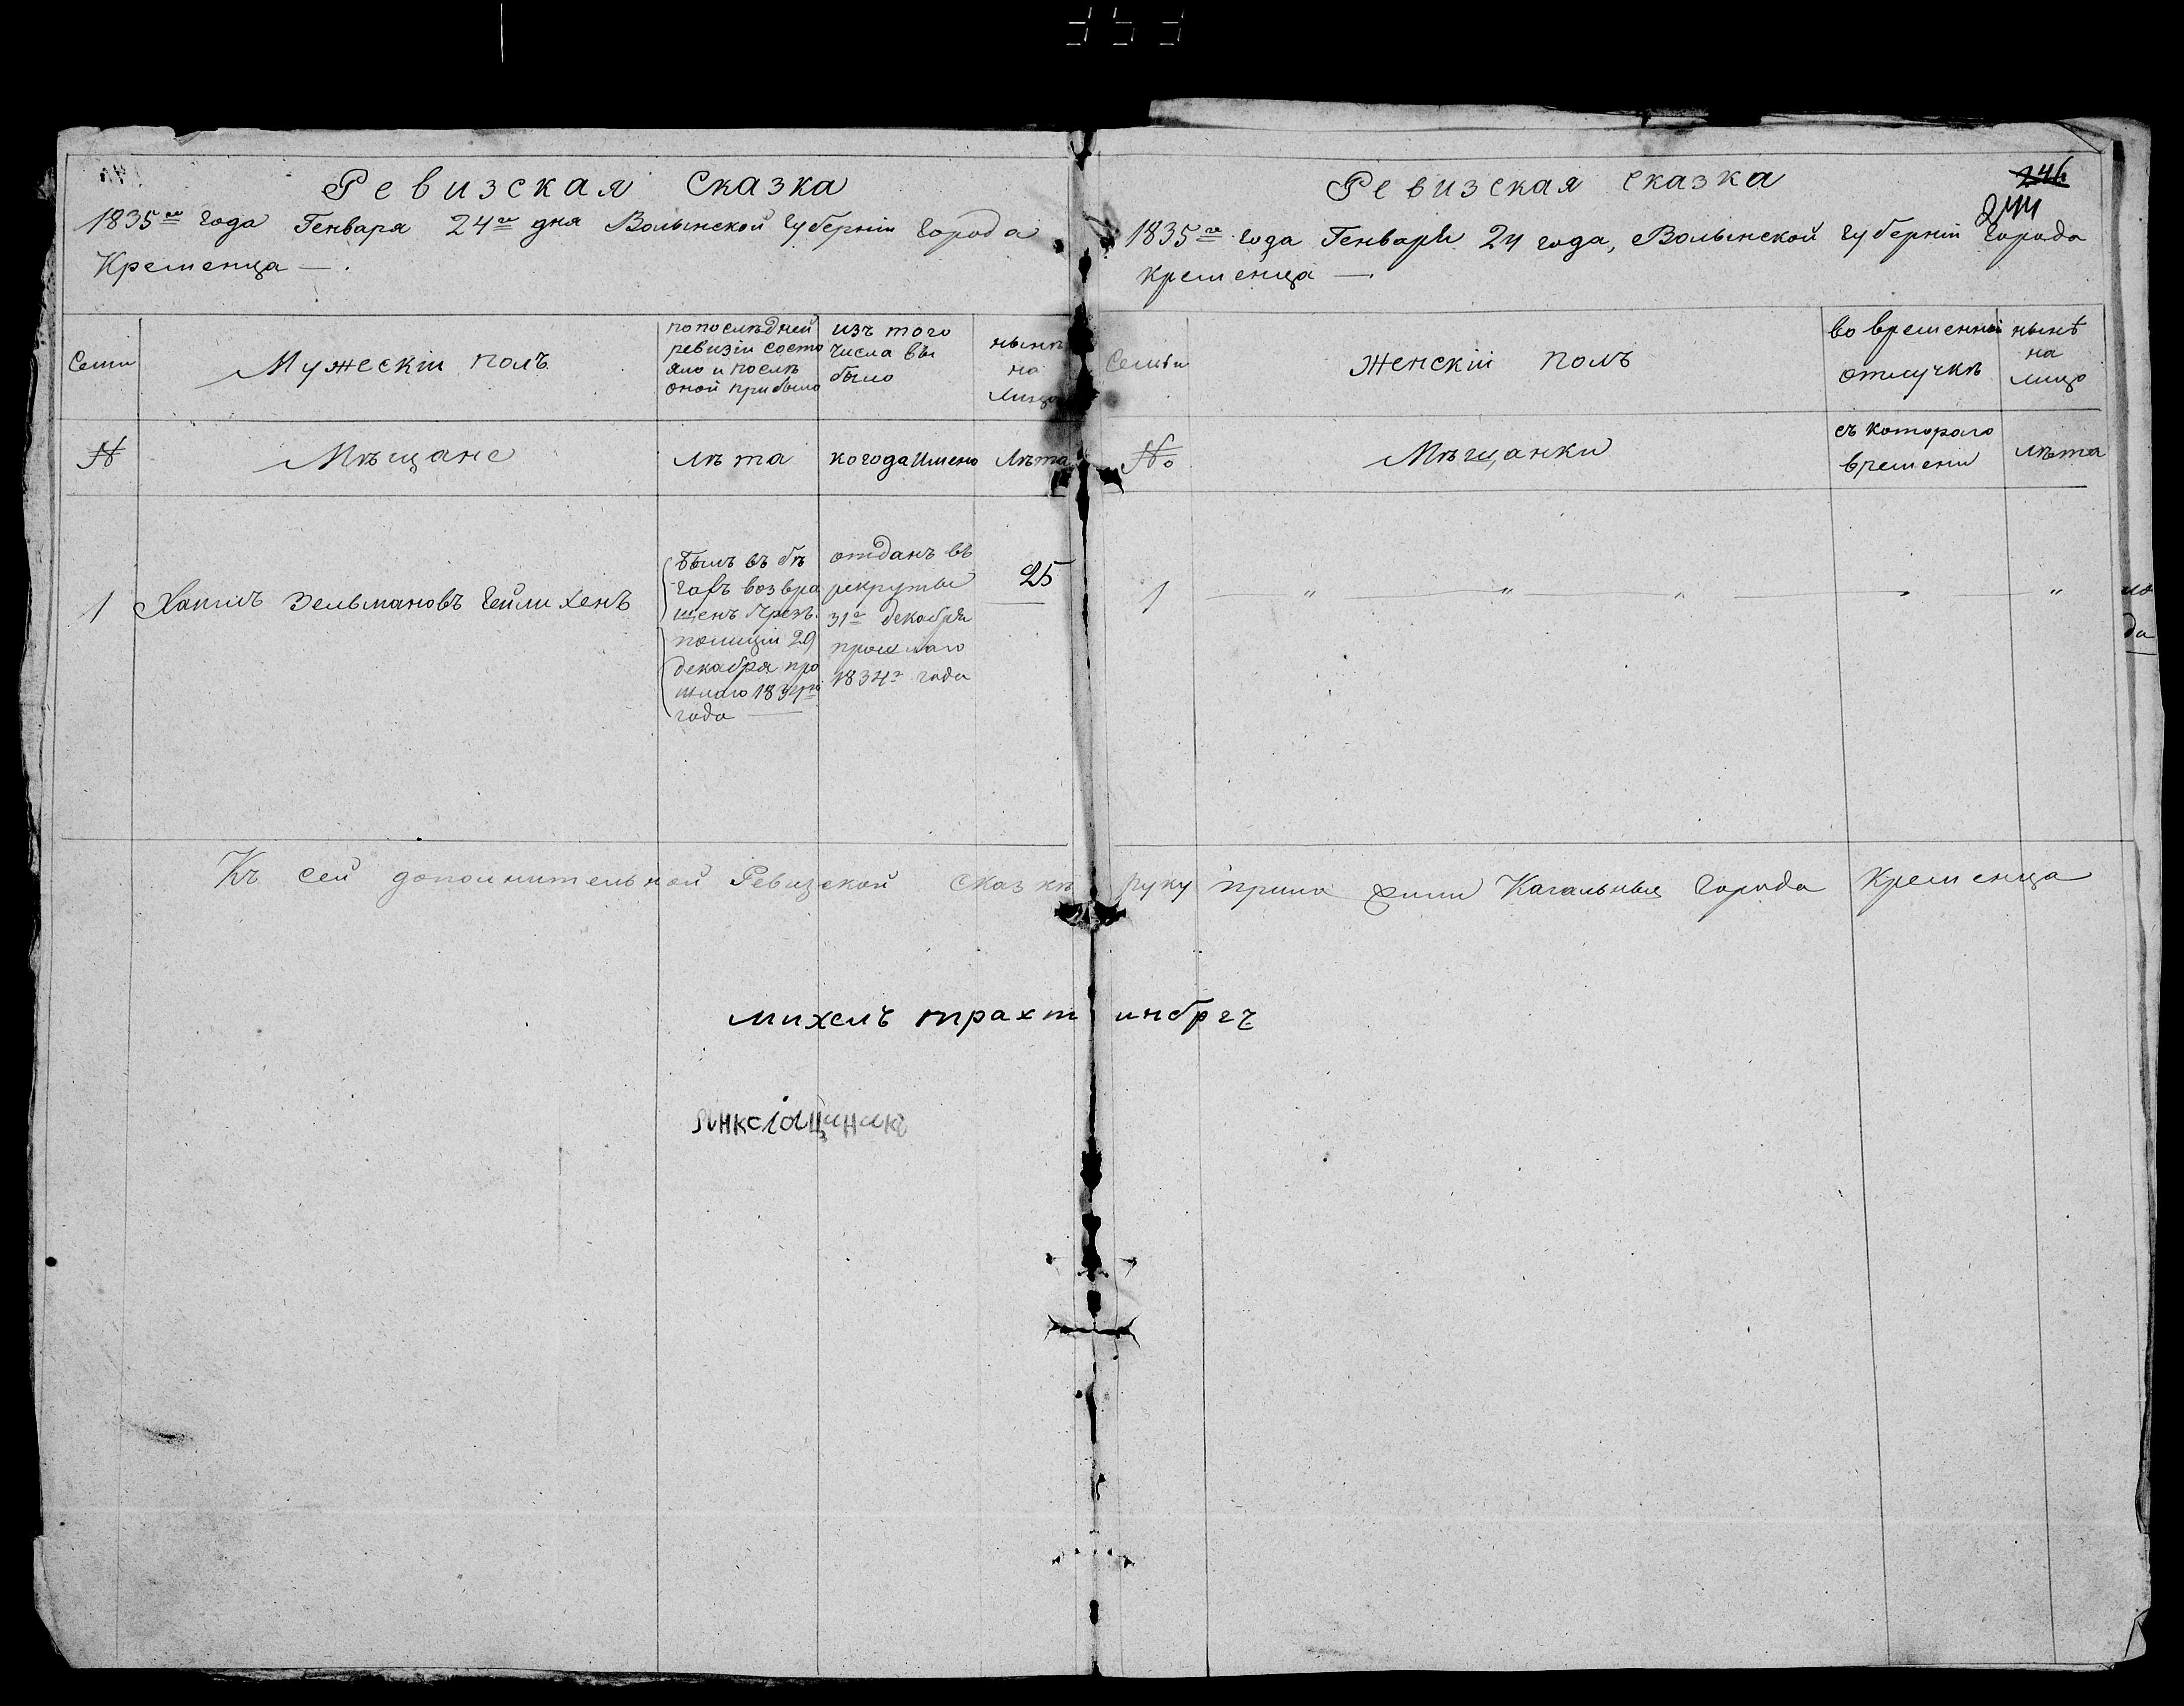 Ревизская Сказка
1835го года Генваря 24го дня Волынской Губернiи Города
Кременца —.
Семьи
Мужескiй полъ
по последней
ревизiи состо
яло и послѣ
оной прибыло
изъ того
числа вы
было
нынѣ
на
лицо
№
Мѣщане
лѣта
когда имено
лѣта
1
Зельмановъ
Былъ въ бѣ
гахъ возвра
щенъ чрезъ
полицiю 29
декабря про
шлаго 1834го
года —
отданъ въ
рекруты
31го декабря
прошлаго
1834го года
25
Ревизская сказка
246
244
1835го года Генваря 24 года, Волынской губернiи Города
Кременца —.
Семьи
Женскiй полъ
во временной
отлучкѣ
нынѣ
на
лицо
№
Мѣщанки
съ котораго
времени
лѣта
1 — " — " — " — " — "
Къ сей дополнительной Ревизской сказкѣ руку приложили Кагальные Города Кременца
михель трахтинбргъ